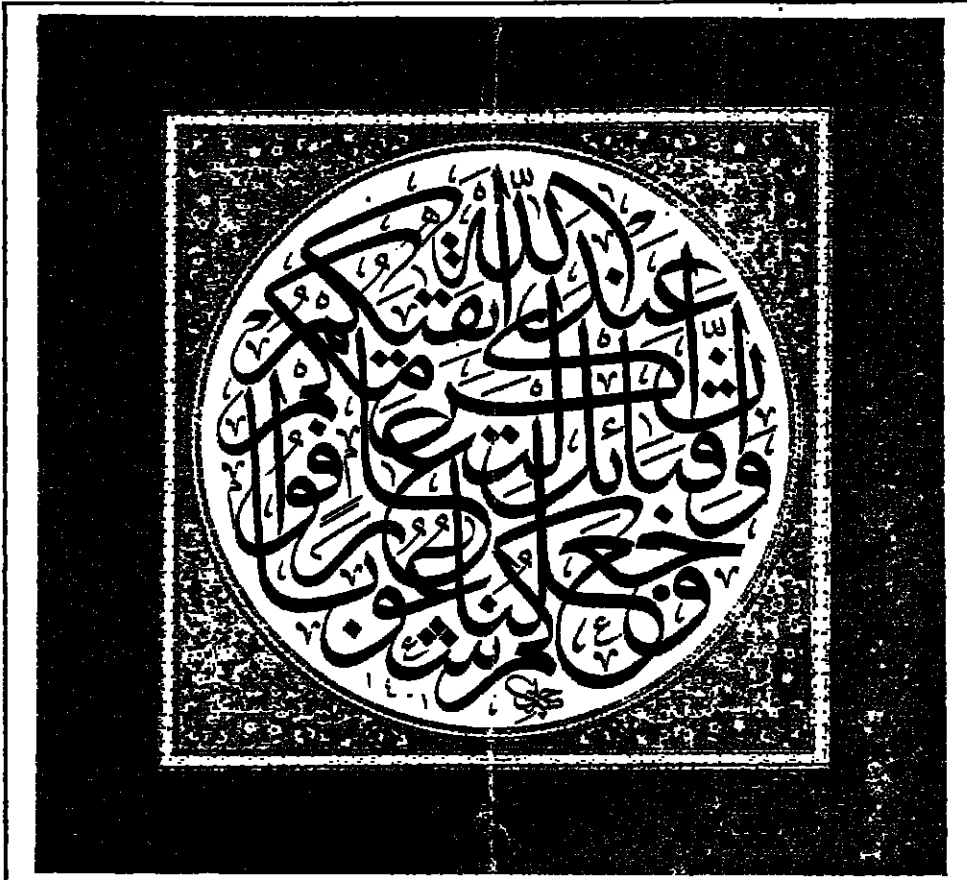 وجعلناكم شعوبا وقبائل لتعارفوا ان اكرمكم عند الله اتقيكم
١٤٠١